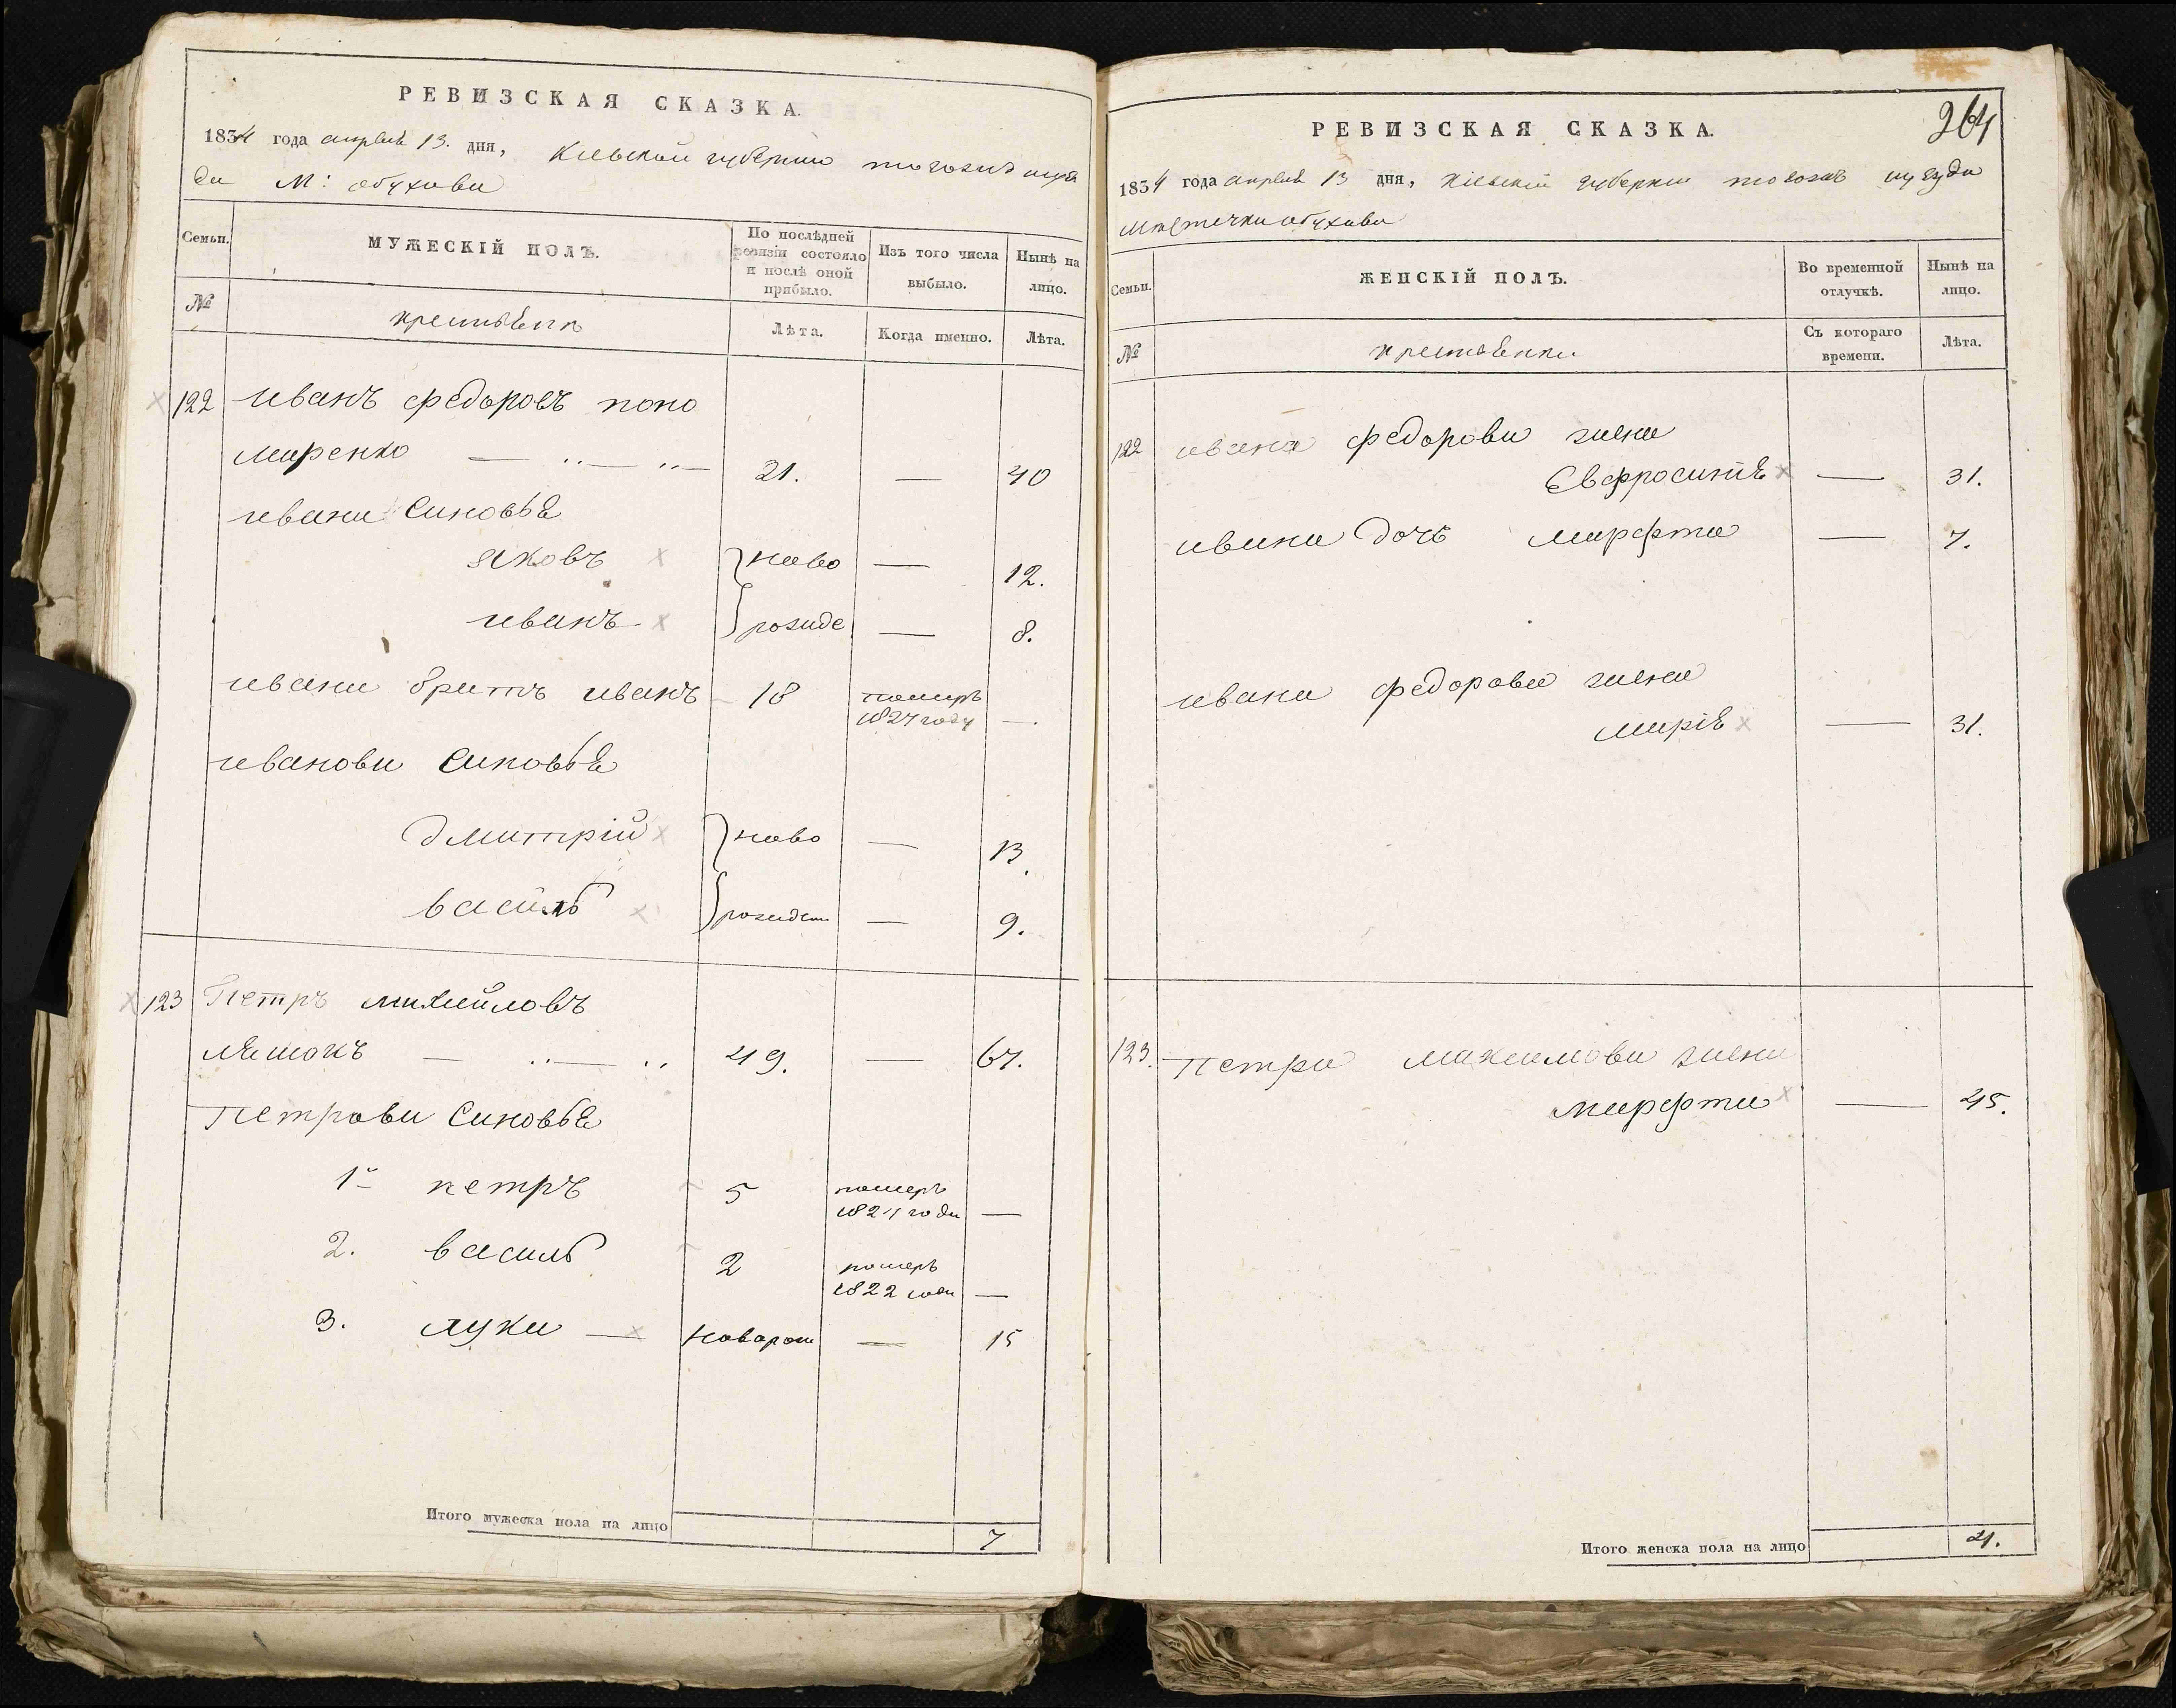 РЕВИЗСКАЯ СКАЗКА.
1834 года апреля 13. дня, Киевской губернии тогожъ пове
да М: обухова
Семьи. МУЖЕСКІЙ ПОЛЪ. По послѣдней ревизіи состояло и послѣ оной прибыло. Изъ того числа выбыло. Нынѣ на лицо.
№ крестьяни Лѣта. Когда именно. Лѣта.
122 иванъ федоровъ поно
маренко — 21. — 40
ивана синовья
яковъ ново — 12.
иванъ рожде — 8.
ивана братъ иванъ 18 помиръ 1827 году —
иванови синовья
дмитрій ново — 13.
василь рожден — 9.
123 Петръ михайловъ
— 49. — 64.
петрови синовья
1й петръ 5 померъ 1821 года —
2. василь 2 померъ 1822 года —
3. лука — новорож — 15
Итого мужеска пола на лицо 7
264
РЕВИЗСКАЯ СКАЗКА.
1834 года апреля 13 дня, Кіевскій губерніи тогожъ
местечка обухова
Семьи. ЖЕНСКІЙ ПОЛЪ. Во временной отлучкѣ. Нынѣ на лицо.
№ крестьянки Съ котораго времени. Лѣта.
122 ивана федорова жена
Євфросинія — 31.
ивана дочь марфта — 7.
ивана федорова жена
марія — 31.
123. петра максимова жена
марфта — 45.
Итого женска пола на лицо 4.